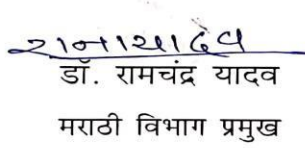 डॉ. रामचंद्र यादव
मराठी विभाग प्रमुख